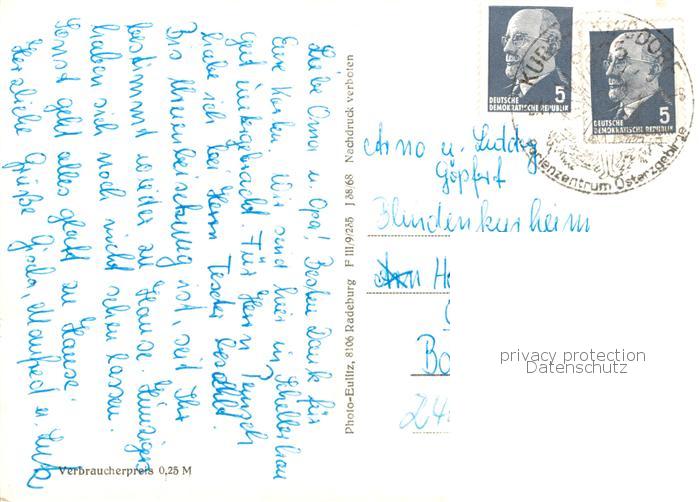 Liebe Oma u. Opa! Besten Dank für
Eure Karten. Wir sind hier in Schellerhau
gut untergebracht. Für Herrn
habe ich bei Herrn Tescher bestellt.
Bis ist, seid Ihr
bestimmt wieder zu Hause.
haben sich noch nicht sehen lassen.
Sonst geht alles glatt zu Hause.
Herzliche Grüße Gisela, Manfred u. Lutz
Verbraucherpreis 0,25 M
Photo-Eulitz, 8106 Radeburg F III/9/235 J 38/68 Nachdruck verboten
5
DEUTSCHE
DEMOKRATISCHE REPUBLIK
5
DEUTSCHE
DEMOKRATISCHE REPUBLIK
KUR
DORF
Ferienzentrum Osterzgebirge
Arno u. Ludwig
Göpfert
Blindenkurheim
privacy protection
Datenschutz